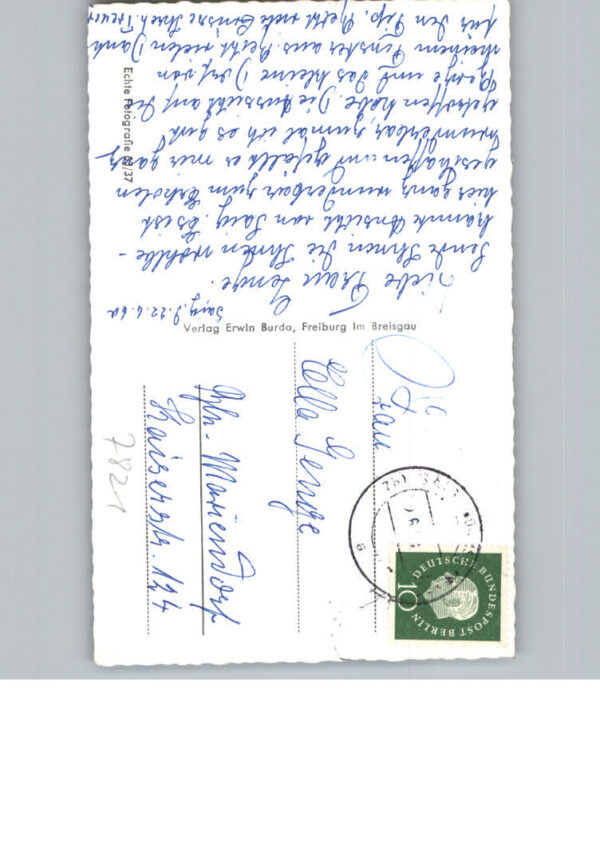 Saig, d. 22.6.60
Liebe Frau Jenge.
Sende Ihnen die Ihnen wohlbe-
kannte Ansicht von Saig. Es ist
hier ganz wunderbar zum Erholen
geschaffen und gefällt es mir ganz
wunderbar, zumal ich es gut
getroffen habe. Die Aussicht auf die
Berge und das kleine Dorf von
meinem Fenster aus. Recht vielen Dank
für den Tip. Recht viele Grüsse Ihre
Echte Fotografie 37
Verlag Erwin Burda, Freiburg im Breisgau
Frau
Ella Jenge
Bln. Mariendorf
Kaiserstr. 124
7821
SAIG
DEUTSCHE BUNDESPOST BERLIN
10